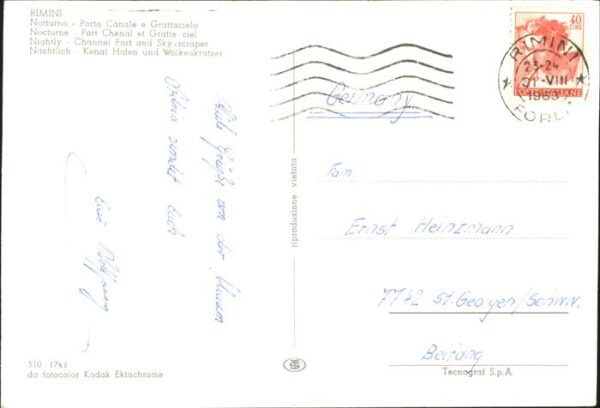 RIMINI
Notturno - Porto Canale e Grattacielo
Nocturne - Port Chenal et Gratte ciel
Nightly - Channel Port and Sky-scraper
Nachtlich - Kenal Hafen und Wolkeakratzer
Viele Grüße von der blauen
Adria sendet Euch
Euer Wolfgang
510 - 1743
da fotocolor Kodak Ektachrome
riproduzione vietata
40
LIRE
RIMINI
23-24
31-VIII
1963
FORLI
Germany
Fam.
Ernst Heinzmann
7742 St. Georgen/Schw.
Tecnograf S.p.A.